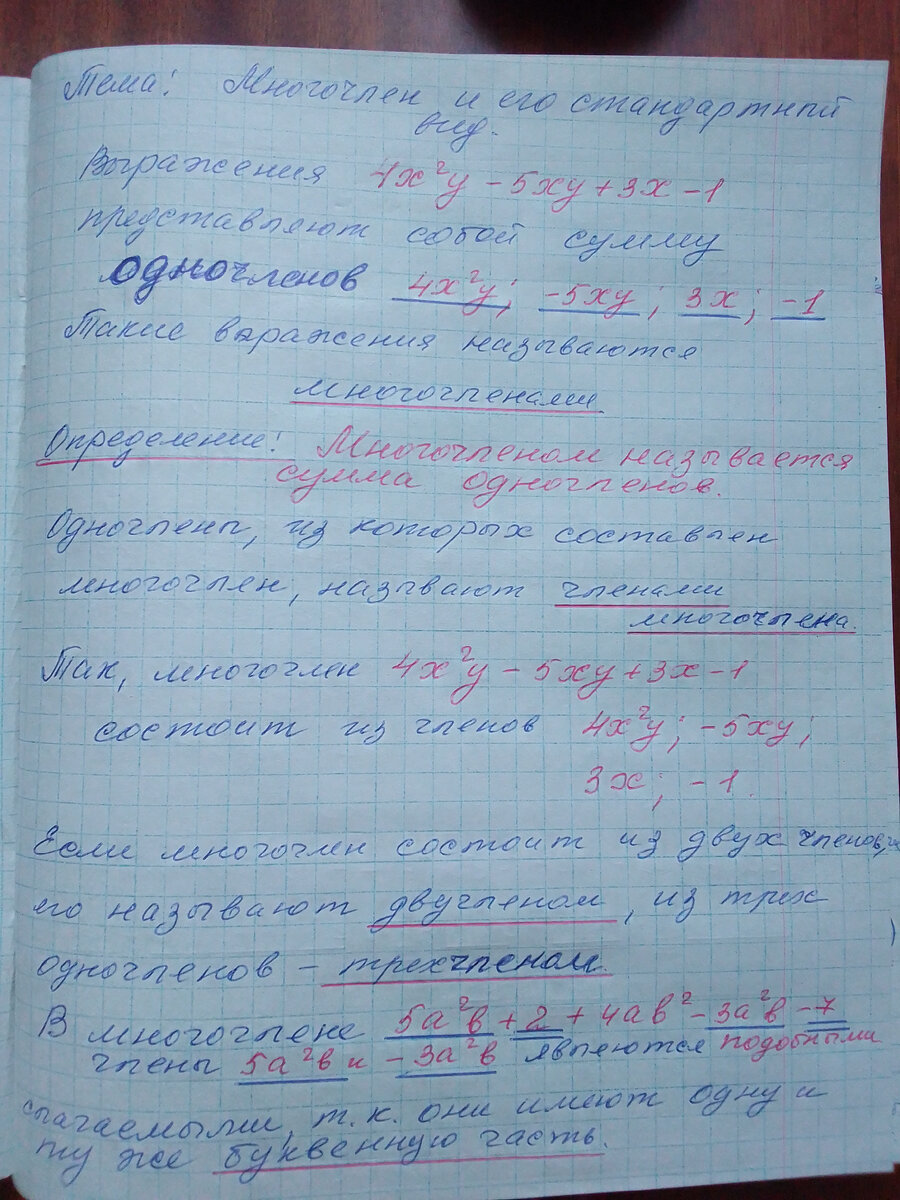 Тема: Многочлен и его стандартный
вид.
Выражения 4x²y - 5xy + 3x - 1
представляют собой сумму
одночленов 4x²y; -5xy; 3x; -1
Такие выражения называются
многочленами
Определение: Многочленом называется
сумма одночленов.
Одночлены, из которых составлен
многочлен, называют членами
многочлена.
Так, многочлен 4x²y - 5xy + 3x - 1
состоит из членов 4x²y; -5xy;
3x; -1.
Если многочлен состоит из двух членов,
его называют двучленом, из трех
одночленов - трехчленом.
В многочлене 5a²b + 2 + 4ab² - 3a²b - 7
члены 5a²b и -3a²b являются подобными
слагаемыми, т.к. они имеют одну и
ту же буквенную часть.